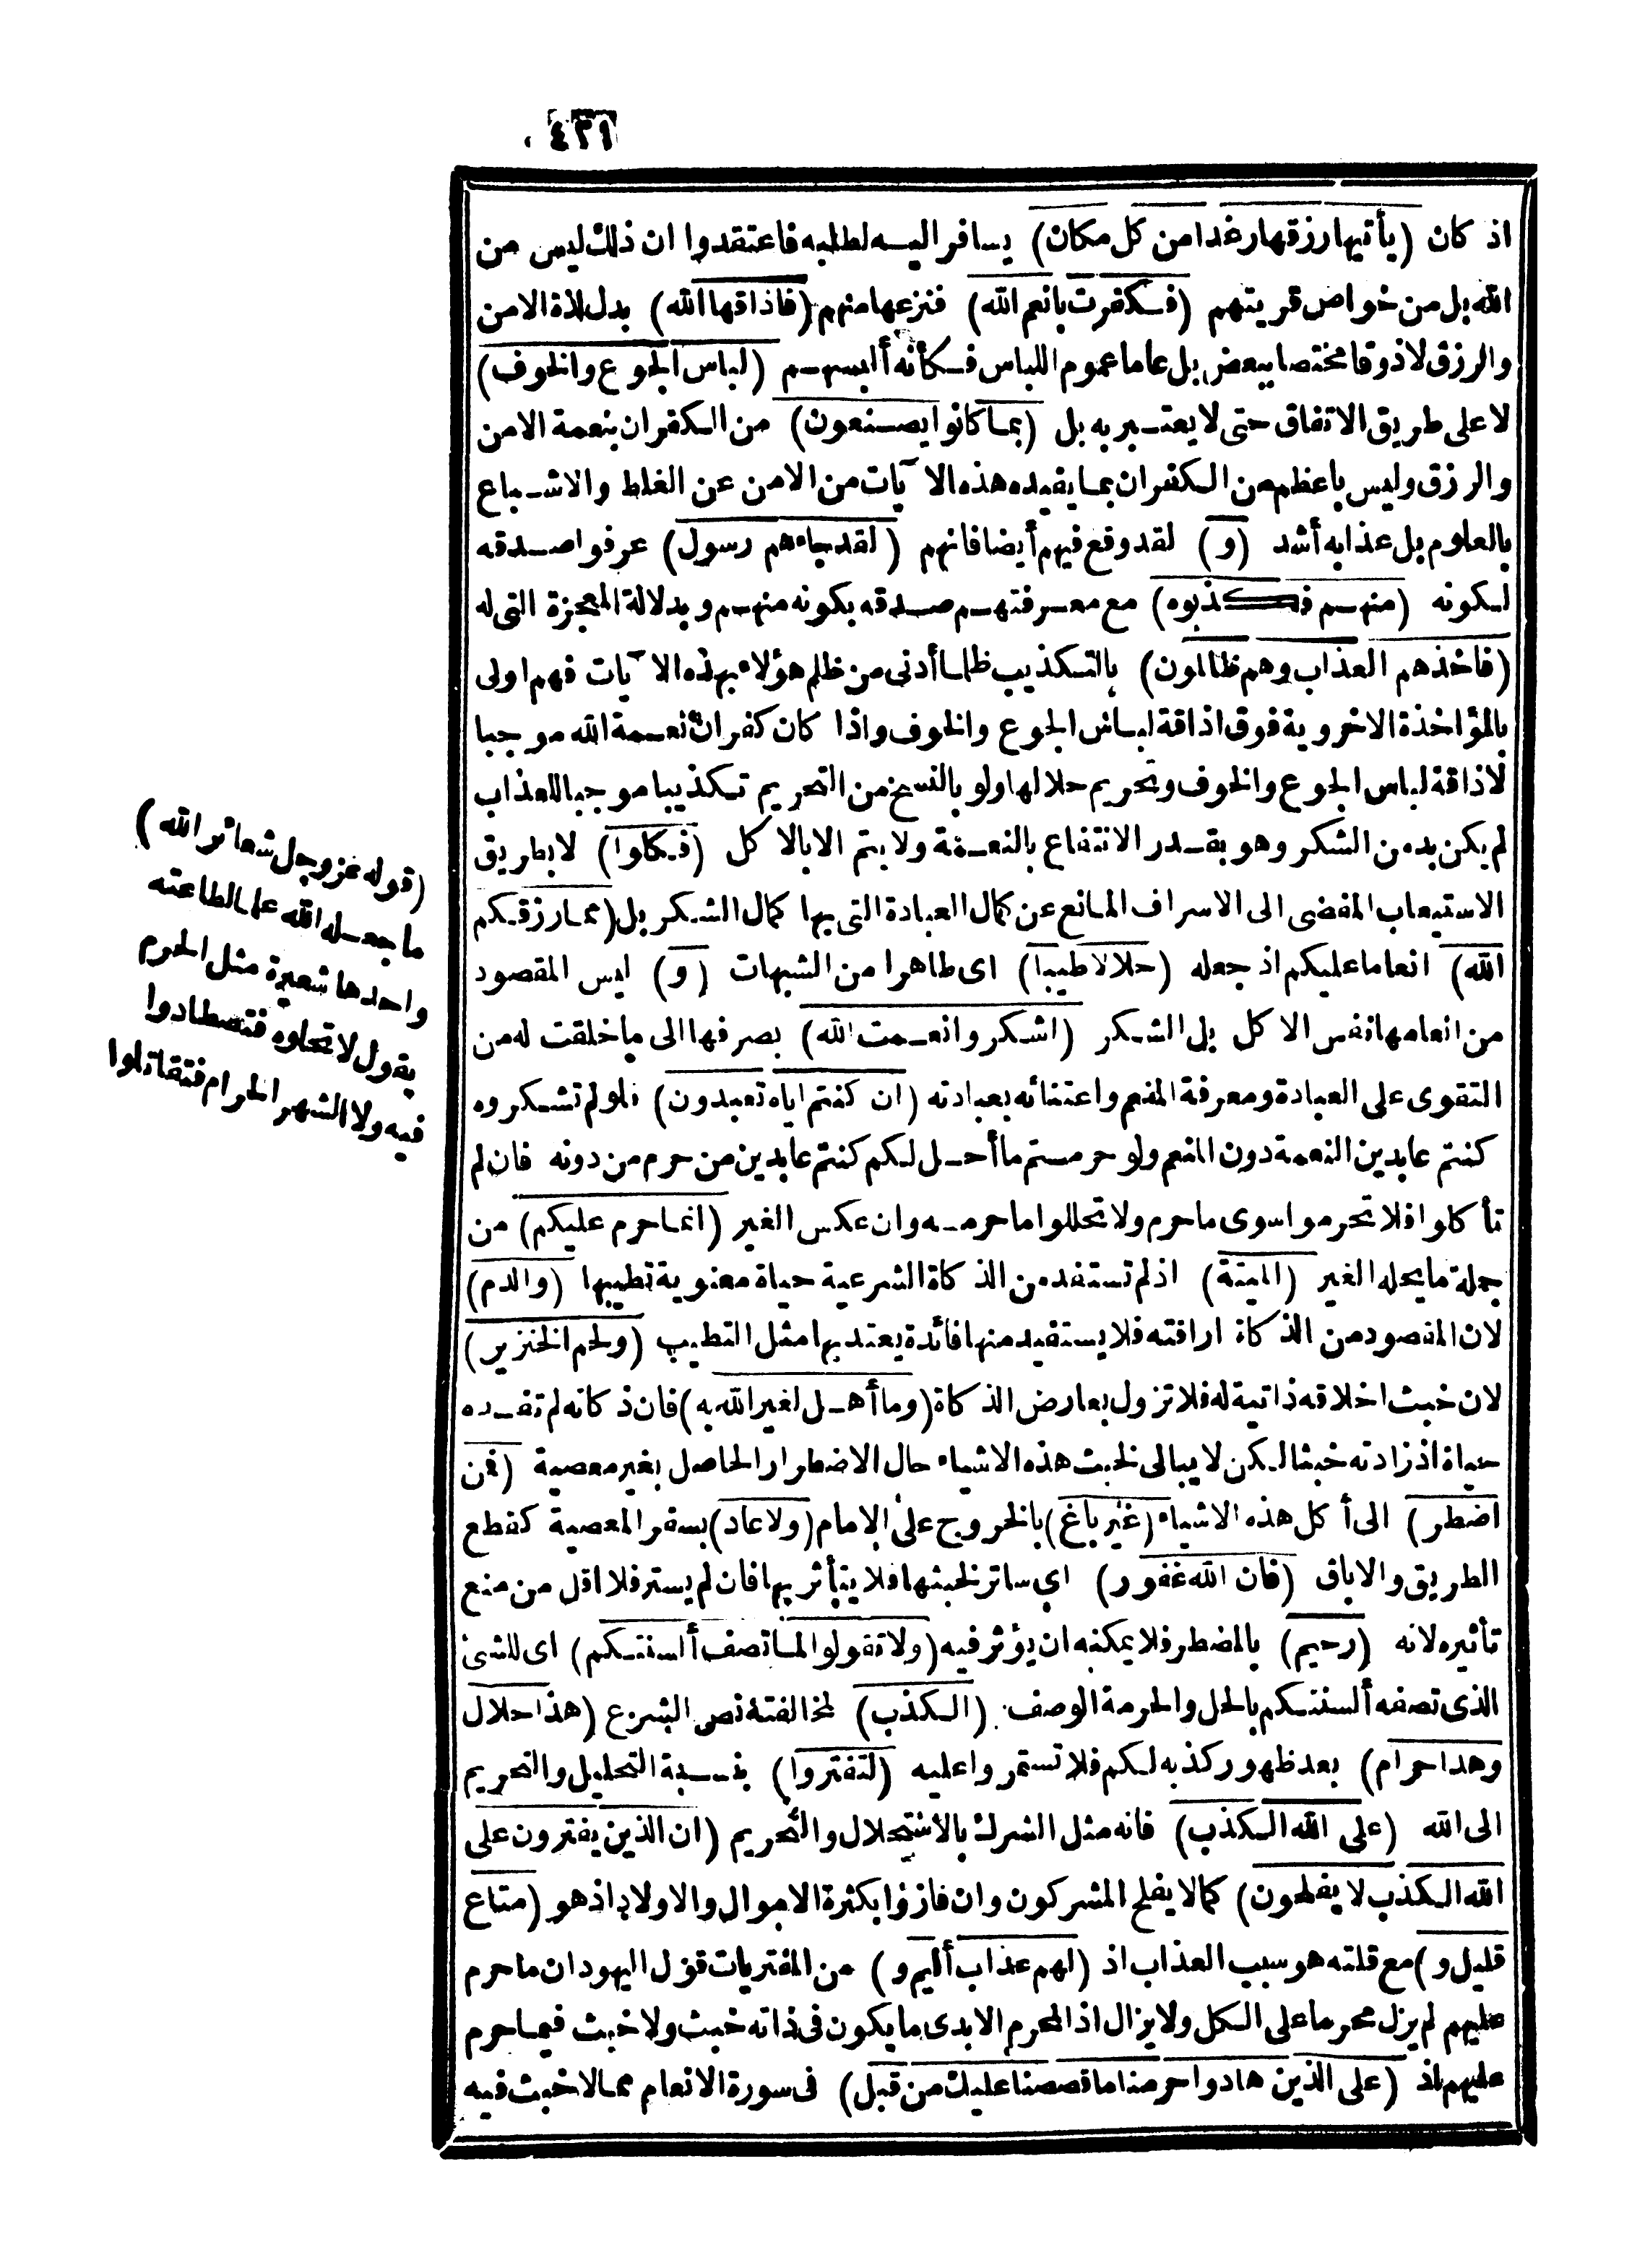 ٤٢١
اذ كان (يأتيها رزقها رغدا من كل مكان) يسافر اليه لطلبه فاعتقدوا ان ذلك ليس من
الله بل من خواص قريتهم (فكفرت بانعم الله) فنزعها منهم (فاذاقها الله) بدل لذة الامن
والرزق لا ذوقا مختصا ببعض بل عاما عموم اللباس فكأنه ألبسهم (لباس الجوع والخوف)
لا على طريق الاتفاق حتى لا يعتبر به بل (بما كانوا يصنعون) من الكفران بنعمة الامن
والرزق وليس باعظم من الكفران بما يفيده هذه الآيات من الامن عن الغلط والاشباع
بالعلوم بل عذابه أشد (و) لقد وقع فيهم أيضا فانهم (لقد جاءهم رسول) عرفوا صدقه
لكونه (منهم فكذبوه) مع معرفتهم صدقه بكونه منهم وبدلالة المعجزة التى له
(فاخذهم العذاب وهم ظالمون) بالتكذيب ظلما أدنى من ظلم هؤلاء بهذه الآيات فهم اولى
بالمؤاخذة الاخروية فوق اذاقة لباس الجوع والخوف واذا كان كفران نعمة الله موجبا
لاذاقة لباس الجوع والخوف وتحريم حلالها ولو بالنسخ من التحريم تكذيبا موجبا للعذاب
لم يكن بد من الشكر وهو بقدر الانتفاع بالنعمة ولا يتم الا بالاكل (فكلوا) لا بطريق
الاستيعاب المفضى الى الاسراف المانع عن كمال العبادة التى بها كمال الشكر بل (مما رزقكم
الله) انعاما عليكم اذ جعله (حلالا طيبا) اى طاهرا من الشبهات (و) ليس المقصود
من انعامها نفس الاكل بل الشكر (اشكروا نعمت الله) بصرفها الى ما خلقت له من
التقوى على العبادة ومعرفة المنعم واعتنائه بعبادته (ان كنتم اياه تعبدون) فلو لم تشكروه
كنتم عابدين النعمة دون المنعم ولو حرمتم ما أحل لكم كنتم عابدين من حرم من دونه فان لم
تأكلوا فلا تحرموا سوى ما حرم ولا تحللوا ما حرمه وان عكس الغير (انما حرم عليكم) من
جملة ما يحله الغير (الميتة) اذ لم تستفد من الذكاة الشرعية حياة معنوية تطيبها (والدم)
لان المقصود من الذكاة اراقته فلا يستفيد منها فائدة يعتد بها مثل التطيب (ولحم الخنزير)
لان خبث اخلاقه ذاتية له فلا تزول بعارض الذكاة (وما أهل لغير الله به) فان ذكاته لم تفده
حياة اذ زادته خبثا لكن لا يبالى لخبث هذه الاشياء حال الاضطرار الحاصل بغير معصية (فمن
اضطر) الى أكل هذه الاشياء (غير باغ) بالخروج على الامام (ولا عاد) بسفر المعصية كقطع
الطريق والاباق (فان الله غفور) اى ساتر لخبثها فلا يتأثر بها فان لم يستر فلا اقل من منع
تأثيره لانه (رحيم) بالمضطر فلا يمكنه ان يؤثر فيه (ولا تقولوا لما تصف ألسنتكم) اى للشئ
الذى تصفه ألسنتكم بالحل والحرمة الوصف (الكذب) لمخالفته نص الشرع (هذا حلال
وهذا حرام) بعد ظهور كذبه لكم فلا تستمروا عليه (لتفتروا) بنسبة التحليل والتحريم
الى الله (على الله الكذب) فانه مثل الشرك بالاستحلال والتحريم (ان الذين يفترون على
الله الكذب لا يفلحون) كما لا يفلح المشركون وان فازوا بكثرة الاموال والاولاد اذ هو (متاع
قليل و) مع قلته هو سبب العذاب اذ (لهم عذاب أليم و) من المفتريات قول اليهود ان ما حرم
عليهم لم يزل محرما على الكل ولا يزال اذ المحرم الابدى ما يكون فى ذاته خبث ولا خبث فيما حرم
عليهم اذ (على الذين هادوا حرمنا ما قصصنا عليك من قبل) فى سورة الانعام مما لا خبث فيه
(قوله عز وجل شعائر الله)
ما جعله الله علما لطاعته
واحدها شعيرة مثل الحرم
يقول لا تحلوه فتصطادوا
فيه ولا الشهر الحرام فتقاتلوا